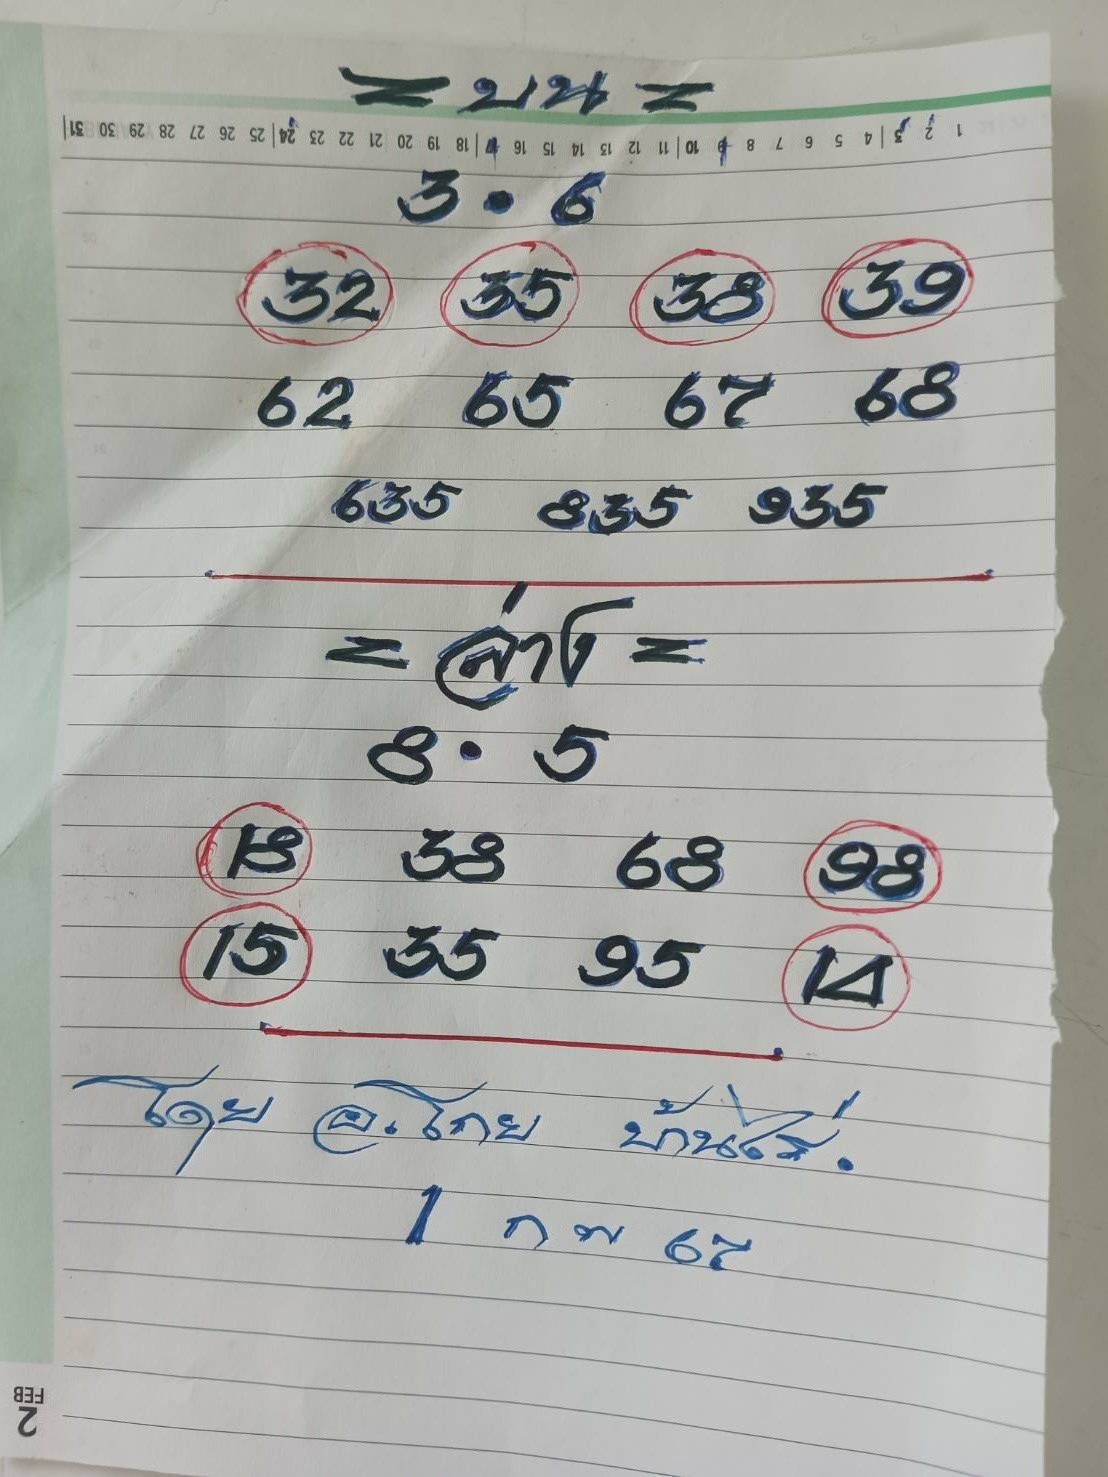 = บน =
1 2 3 | 4 5 6 7 8 9 10 | 11 12 13 14 15 16 17 | 18 19 20 21 22 23 24 | 25 26 27 28 29 30 31
3 • 6
32 35 38 39
62 65 67 68
635 835 935
= ล่าง =
8 • 5
18 38 68 98
15 35 95 14
โดย อ.โกย บ้านไร่.
1 กพ 67
2
FEB